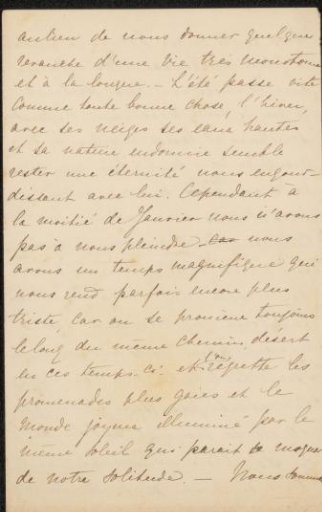 au lieu de nous donner quelque
revanche d'une vie très monotone
et à la longue. — L'été passe vite
comme toute bonne chose, l'hiver,
avec ses neiges ses eaux hautes
et sa nature endormie semble
rester une éternité nous engour-
dissant avec lui. Cependant à
la moitié de Janvier nous n'avons
pas à nous plaindre car nous
avons un temps magnifique qui
nous rend parfois encore plus
triste, car on se promène toujours
le long du même chemin désert
en ces temps-ci et l'on regrette les
promenades plus gaies et le
monde joyeux illuminé par le
même soleil qui parait se moquer
de notre solitude. — Nous sommes